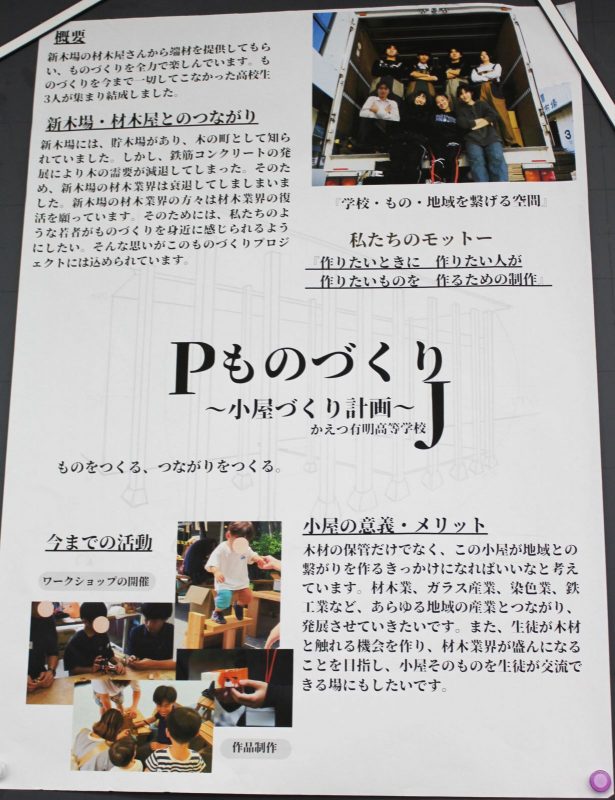 概要
新木場の材木屋さんから端材を提供してもら
い、ものづくりを全力で楽しんでいます。も
のづくりを今まで一切してこなかった高校生
3人が集まり結成しました。
新木場・材木屋とのつながり
新木場には、貯木場があり、木の町として知ら
れていました。しかし、鉄筋コンクリートの発
展により木の需要が減退してしまった。そのた
め、新木場の材木業界は衰退してしましまいま
した。新木場の材木業界の方々は材木業界の復
活を願っています。そのためには、私たちのよ
うな若者がものづくりを身近に感じられるよう
にしたい。そんな思いがこのものづくりプロジ
ェクトには込められています。
3
『学校・もの・地域を繋げる空間』
私たちのモットー
『作りたいときに 作りたい人が
作りたいものを 作るための制作』
Pものづくり
J
～小屋づくり計画～
かえつ有明高等学校
ものをつくる、つながりをつくる。
今までの活動
ワークショップの開催
作品制作
小屋の意義・メリット
木材の保管だけでなく、この小屋が地域との
繋がりを作るきっかけになればいいなと考え
ています。材木業、ガラス産業、染色業、鉄
工業など、あらゆる地域の産業とつながり、
発展させていきたいです。また、生徒が木材
と触れる機会を作り、材木業界が盛んになる
ことを目指し、小屋そのものを生徒が交流で
きる場にもしたいです。